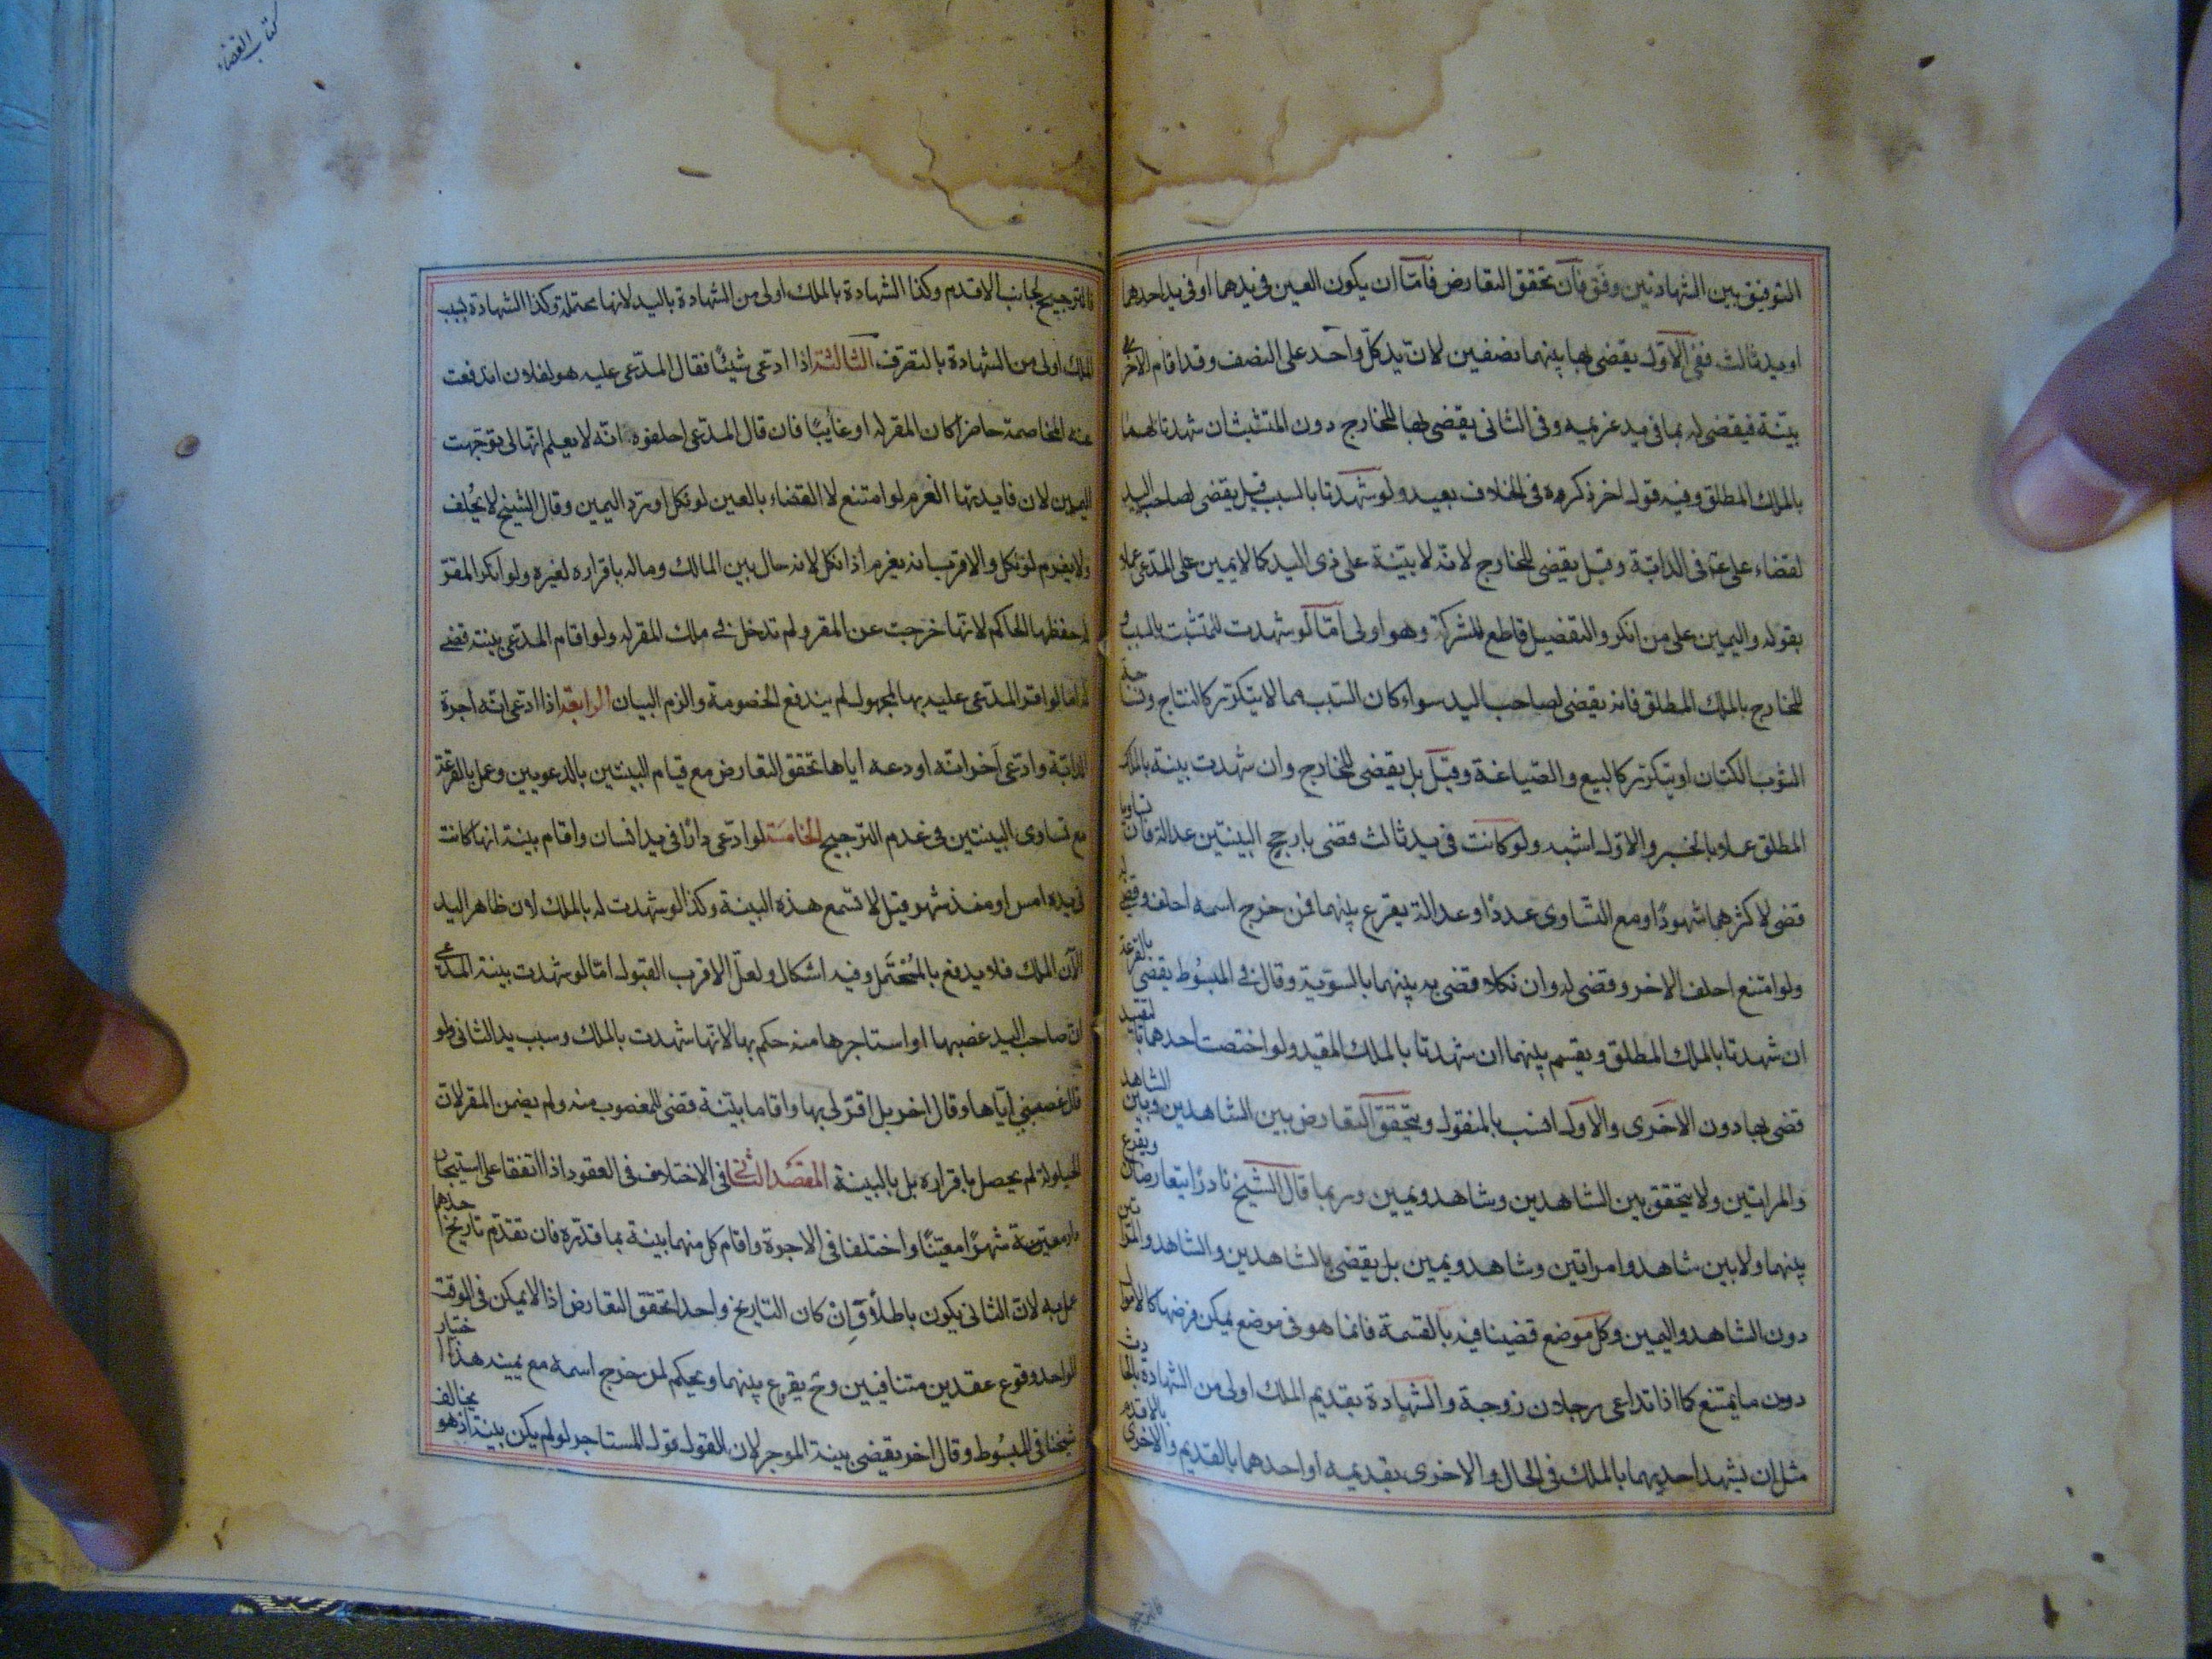 التوفيق بين الشهادتين وفق فان تحقق التعارض فامّا ان يكون العين فى يدهما او فى يد احدهما
او يد ثالث ففى الاوّل يقضى بها بينهما نصفين لانّ يد كلّ واحد على النصف وقد اقام الاخر
بيّنة فيقضى له بما فى يد غريمه وفى الثانى يقضى بها للخارج دون المتشبث ان شهدتا لهما
بالملك المطلق وفيه قول اخر ذكره فى الخلاف بعيد ولو شهدتا بالسبب قيل يقضى لصاحب اليد
لقضاء على ع فى الدابّة وقيل يقضى للخارج لانّه لا بيّنة على ذى اليد كما لا يمين على المدّعى عملا
بقوله واليمين على من انكر والتفصيل قاطع للشركة وهو اولى امّا لو شهدت للمتشبث بالسبب و
للخارج بالملك المطلق فانه يقضى لصاحب اليد سواء كان السّبب مما لا يتكرّر كالنتاج ونساجة
الثوب الكتان او يتكرّر كالبيع والصّياغة وقيل بل يقضى للخارج وان شهدت بينة بالملك
المطلق عملا بالخبر والاوّل اشبه ولو كانت فى يد ثالث قضى بارجح البينتين عدالة فان تساويا
قضى لاكثرهما شهودًا ومع التّساوى عددًا وعدالة يقرع بينهما فمن خرج اسمه احلف وقضى له
ولو امتنع احلف الاخر وقضى له وان نكلا قضى به بينهما بالسويّة وقال فى المبسُوط يقضى بالقرعة
ان شهدتا بالملك المطلق ويقسم بينهما ان شهدتا بالملك المقيد ولو اختصت احدهما بالتقييد
قضى بها دون الاخرى والاوّل انسب بالمنقول ويتحقق التعارض بين الشاهدين وبين الشاهد
والمراتين ولا يتحقق بين الشاهدين وشاهد ويمين وربما قال الشّيخ نادرًا يتعارضان ويقرع
بينهما ولا بين شاهد وامراتين وشاهد ويمين بل يقضى بالشاهدين والشاهد والمراتين
دون الشاهد واليمين وكل موضع قضينا فيه بالقسمة فانما هو فى موضع يمكن فرضها كالاموال
دون ما يمتنع كما اذا تداعى رجلان زوجة والشهادة بقديم الملك اولى من الشهادة بالحادث
مثل ان يشهد احديهما بالملك فى الحال والاخرى بقديمه او احدهما بالقديم والاخرى بالاقدم
كتاب القضاء
فالترجيح لجانب الاقدم وكذا الشهادة بالملك اولى من الشهادة باليد لانها محتملة وكذا الشهادة بسبب
الملك اولى من الشهادة بالتصرّف الثالثة اذا ادّعى شيئًا فقال المدّعى عليه هو لفلان اندفعت
عنه المخاصمة حاضرًا كان المقر له او غايبًا فان قال المدّعى احلفوه انّه لا يعلم انّها لى توجّهت
اليمين لان فايدتها الغرم لو امتنع لا القضاء بالعين لو نكل او ردّ اليمين وقال الشيخ لا يُحلف
ولا يغرم لو نكل والاقرب انه يغرم اذا نكل لانه حال بين المالك وماله باقراره لغيره ولو انكر المقرّ
له حفظها الحاكم لانّها خرجت عن المقر ولم تدخل فى ملك المقر له ولو اقام المدّعى بينة قضى
له اما لو اقر المدّعى عليه بها لمجهول لم يندفع الخصومة والزم البيان الرابعة اذا ادّعى انّه اجرة
الدابّة وادّعى آخر انّه اودعه اياها تحقق التعارض مع قيام البينتين بالدعويين وعمل بالقرعة
مع تساوى البينتين فى عدم الترجيح الخامسَة لو ادّعى دارًا فى يد انسان واقام بينة انها كانت
فى يده امس او منذ شهر قيل لا تسمع هذه البينة وكذا لو شهدت له بالملك لان ظاهر اليد
الآن الملك فلا يدفع بالمُحْتَمل وفيه اشكال ولعلّ الاقرب القبول امّا لو شهدت بينة المدّعى
انّ صاحب اليد غصبها او استاجرها منه حكم بها لانّها شهدت بالملك وسبب يد الثانى ولو
قال غصبنى ايّاها وقال اخر بل اقرّ لى بها واقاما بيّنة قضى للمغصوب منه ولم يضمن المقر لان
الحيلولة لم يحصل باقراره بل بالبينة المقصَد الثّانى فى الاختلاف فى العقود اذا اتفقا على استيجار
دار معيّنة شهرًا معيّنًا واختلفا فى الاجرة واقام كل منهما بينة بما قدّره فان تقدّم تاريخ احدهما
عمل به لانّ الثانى يكون باطلاً وَاِنْ كان التاريخ واحدا تحقق التعارض اذ لا يمكن فى الوقت
الواحد وقوع عقدين متنافيين وح يقرع بينهما ويحكم لمن خرج اسمه مع يمينه هذا اختيار
شيخنا فى المبسُوط وقال اخر يقضى ببينة الموجر لان القول قول المستاجر لو لم يكن بينة اذ هو يخالف